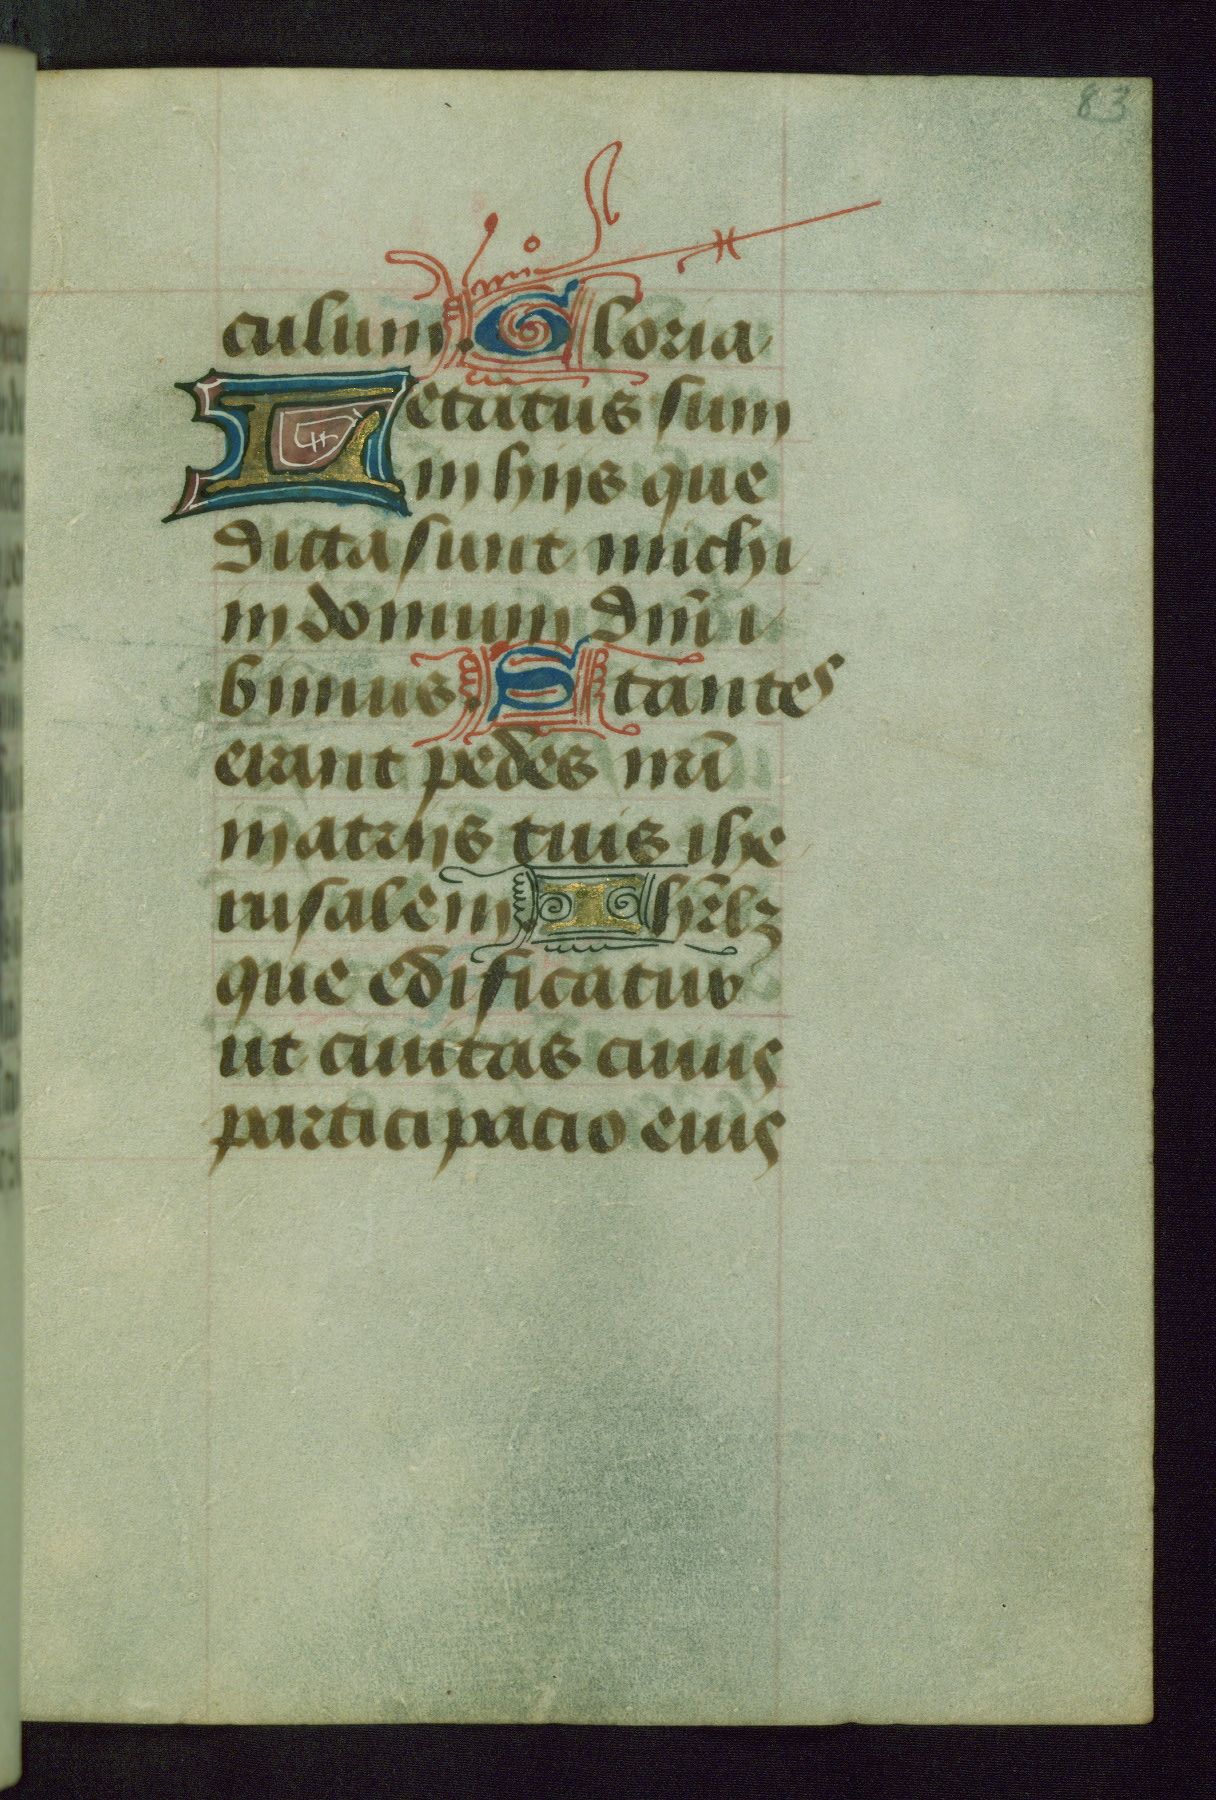 83
culum. Gloria
Letatus sum
in hijs que
dicta sunt michi
in domum dñi i
bimus. Stantes
erant pedes nr̃i
in atrijs tuis ihe
rusalem Ihrl̃ꝫ
que edificatur
ut ciuitas cuius
participacio eius